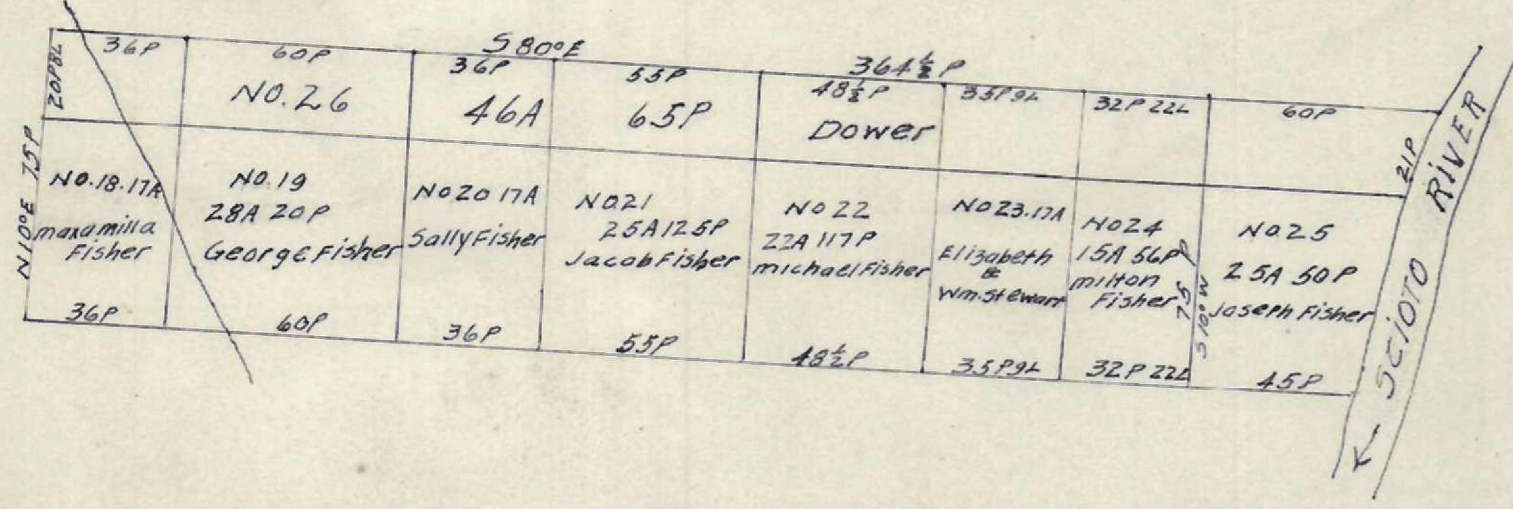 S 80° E
364 1/2 P
36P
60P
36P
55P
48 1/2 P
35P9L
32P 22L
60P
20P8L
NO. 26
46A
65P
Dower
21P
N10°E 75P
NO. 18. 17A
maxamilla
Fisher
36P
NO. 19
28A 20P
George Fisher
60P
NO 20 17A
Sally Fisher
36P
NO 21
25A 125P
Jacob Fisher
55P
NO 22
22A 117P
michael Fisher
48 1/2 P
NO 23. 17A
Elizabeth
&
Wm. Stewart
35P9L
NO 24
15A 56P
milton
Fisher
32P 22L
75 P
S 10° W
NO 25
25A 50P
Joseph Fisher
45P
SCIOTO RIVER